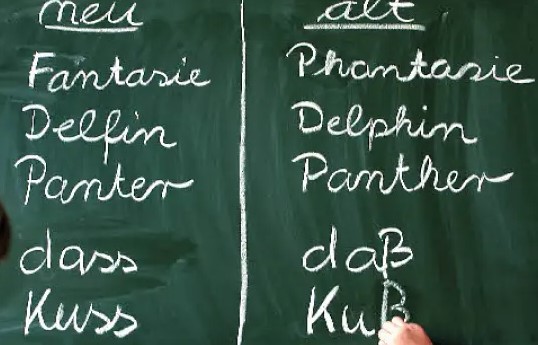 neu alt
Fantasie Phantasie
Delfin Delphin
Panter Panther
dass daß
Kuss Kuß